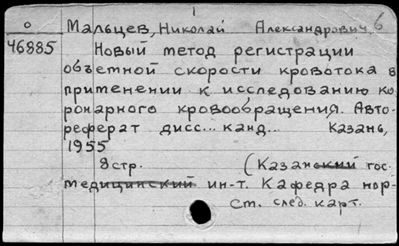 1
о Мальцев, Николай Александрович, 6
46885 Новый метод регистрации
объемной скорости кровотока в
применении к исследованию ко
ронарного кровообращения. Авто-
реферат дисс... канд... Казань,
1955
8 стр. (Казанский гос.
медицинский ин-т. Кафедра нор-
ст. след. карт.